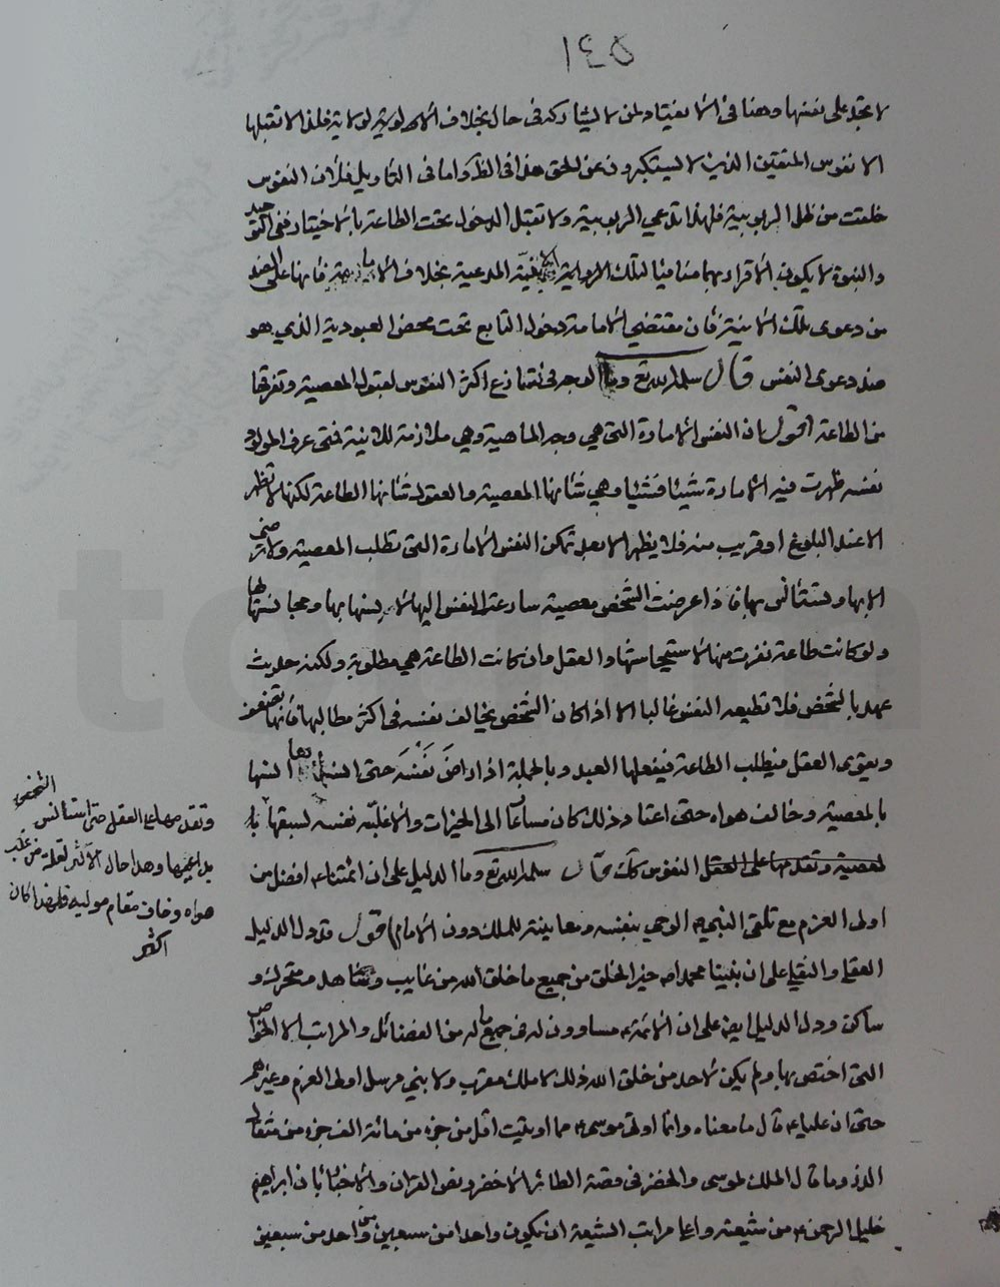 ١٤٥
لا تجد على نفسها وهنا في الانقياد لمن لا يشاركه في حال بخلاف الامر لوية لولاية فلذا لا تقبلها
الا نفوس المتقين الذين لا يستكبرون عن الحق هذا في الظ واما في التاويل فلان النفوس
خلقت من ظل الربوبية فلهذا تدعي الربوبية ولا تقبل الدخول تحت الطاعة بالاختيار ففي التوحيد
والنبوة لا يكون الاقرار بهما منافيا لتلك المدعية بخلاف الامامة فانها على الضد
من دعوى تلك الانية فان مقتضى الامامة دخول التابع تحت محض العبودية الذي هو
ضد دعوى النفس قال سلمه الله تع وما الوجه في تسارع اكثر النفوس لقبول المعصية ونفرتها
من الطاعة اقول ان النفس الامارة التي هي وجه الماهية وهي ملازمة للانية فمتى عرف المولود
نفسه ظهرت فيه الامارة شيئا فشيئا وهي شانها المعصية والعقول شانها الطاعة لكنها لا تظهر
الا عند البلوغ او قريب منه فلا يظهر الا بعد تمكن النفس الامارة التي تطلب المعصية ولا ترضى
الا بها وتستانس بها فاذا عرضت للشخص معصية سارعت النفس اليها لانسها بها ومجانستها لها
ولو كانت طاعة نفرت منها لاستيحاشها والعقل وان كانت الطاعة هي مطلوبة ولكنه حديث
عهد بالشخص فلا تطيعه النفس غالبا الا اذا كان الشخص يخالف نفسه في اكثر مطالبها فانها تضعف
ويقوى العقل فيطلب الطاعة فيفعلها العبد وبالجملة اذا راض نفسه حتى انسها
بالمعصية وخالف هواه حتى اعتاد ذلك كان مسارعا الى الخيرات والا غلبته نفسه لسبقها با
لمعصية وتقدمها على العقل النفوس كك قال سلمه الله تع وما الدليل على ان ائمتنا ع افضل من
اولى العزم مع تلقى النبي ع الوحي بنفسه ومعاينته للملك دون الامام اقول قد دل الدليل
العقلي والنقلي على ان نبينا محمدا ص خير الخلق من جميع ما خلق الله من غايب وشاهد ومتحرك و
ساكن ودل الدليل ايض على ان الائمة ع مساوون له في جميع ما له من الفضائل والمراتب الا الخواص
التي اختص بها ولم يكن لاحد من خلق الله ذلك لا ملك مقرب ولا نبي مرسل اولى العزم وغيرهم
حتى ان عليا ع قال ما معناه وانما اوتي موسى ع مما اوتيت اقل من جزء من مائة الف جزء من مثقال
الذر وما قال الملك لموسى والخضر في قصة الطائر الاخضر ونص القران والاخبار بان ابراهيم
خليل الرحمن ع من شيعته واعلى مراتب الشيعة ان يكون واحدا من سبعين من واحد من سبعين
الشخص
وتقدمها على العقل حتى استانس
بدواعيها وهذا حال الاكثر لقلة من غلب
هواه وخاف مقام مولاه فلهذا كان
اكثر